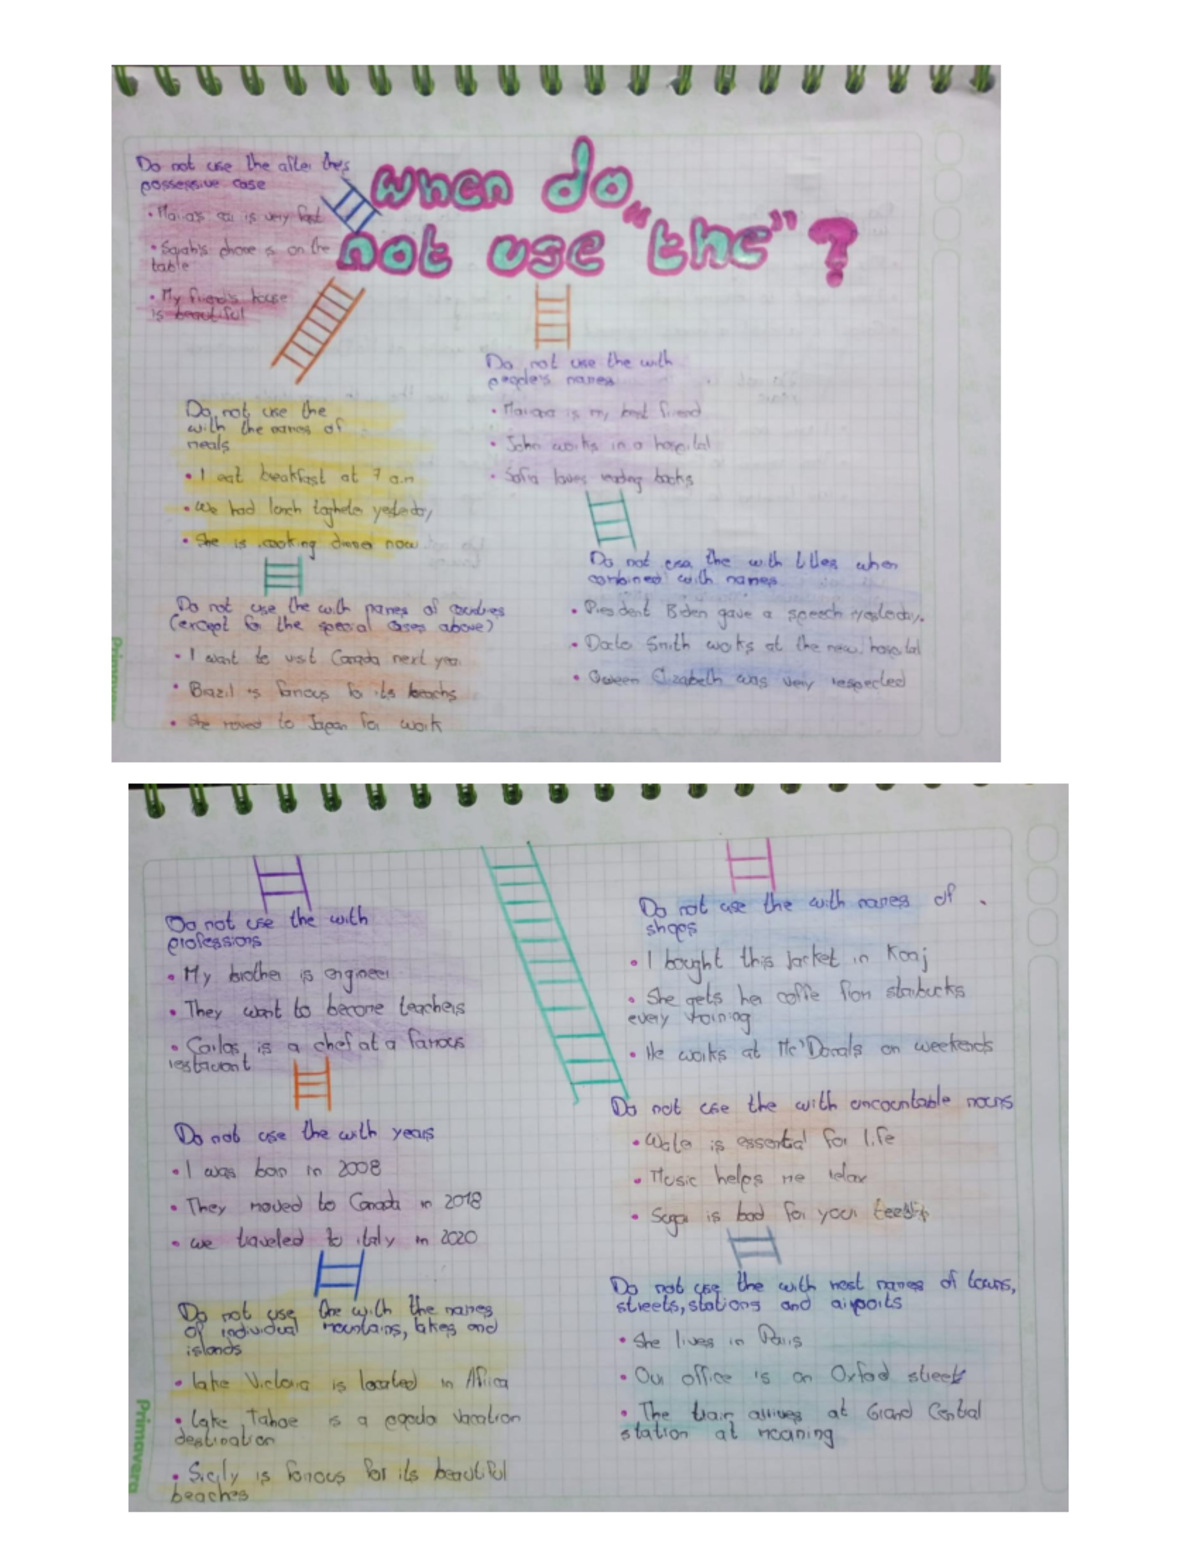 when do
not use "the"?
Do not use the after the
possessive case
• Maria's car is very fast
• Sarah's phone is on the
table
• My friend's house
is beautiful
Do not use the
with the names of
meals
• I eat breakfast at 7 a.m
• We had lunch yesterday
• She is cooking dinner now
Do not use the with names of countries
(except for the special cases above)
• I want to visit Canada next year
• Brazil is famous for its beachs
• She moved to Japan for work
Do not use the with
people's names
• is my best friend
• John works in a hospital
• Sofia loves reading books
Do not use the with titles when
combined with names
• President Biden gave a speech yesterday.
• Docto Smith works at the new hospital
• Queen Elizabeth was very respected
Primavera
Do not use the with
professions
• My brother is engineer
• They want to become teachers
• Carlos is a chef at a famous
restaurant
Do not use the with years
• I was born in 2008
• They moved to Canada in 2018
• we traveled to italy in 2020
Do not use the with the names
of individual mountains, lakes and
islands
• lake Victoria is located in Africa
• Lake Tahoe is a vacation
destination
• Sicily is famous for its beautiful
beaches
Do not use the with names of
shops
• I bought this jacket in Koaj
• She gets her coffe from starbucks
every
• He works at Mc'Donals on weekends
Do not use the with uncountable nouns
• Water is essential for life
• Music helps me relax
• Sugar is bad for your teeth
Do not use the with most names of towns,
streets, stations and airports
• She lives in Paris
• Our office is on Oxford street
• The train arrives at Grand Central
station at moaning
Primavera